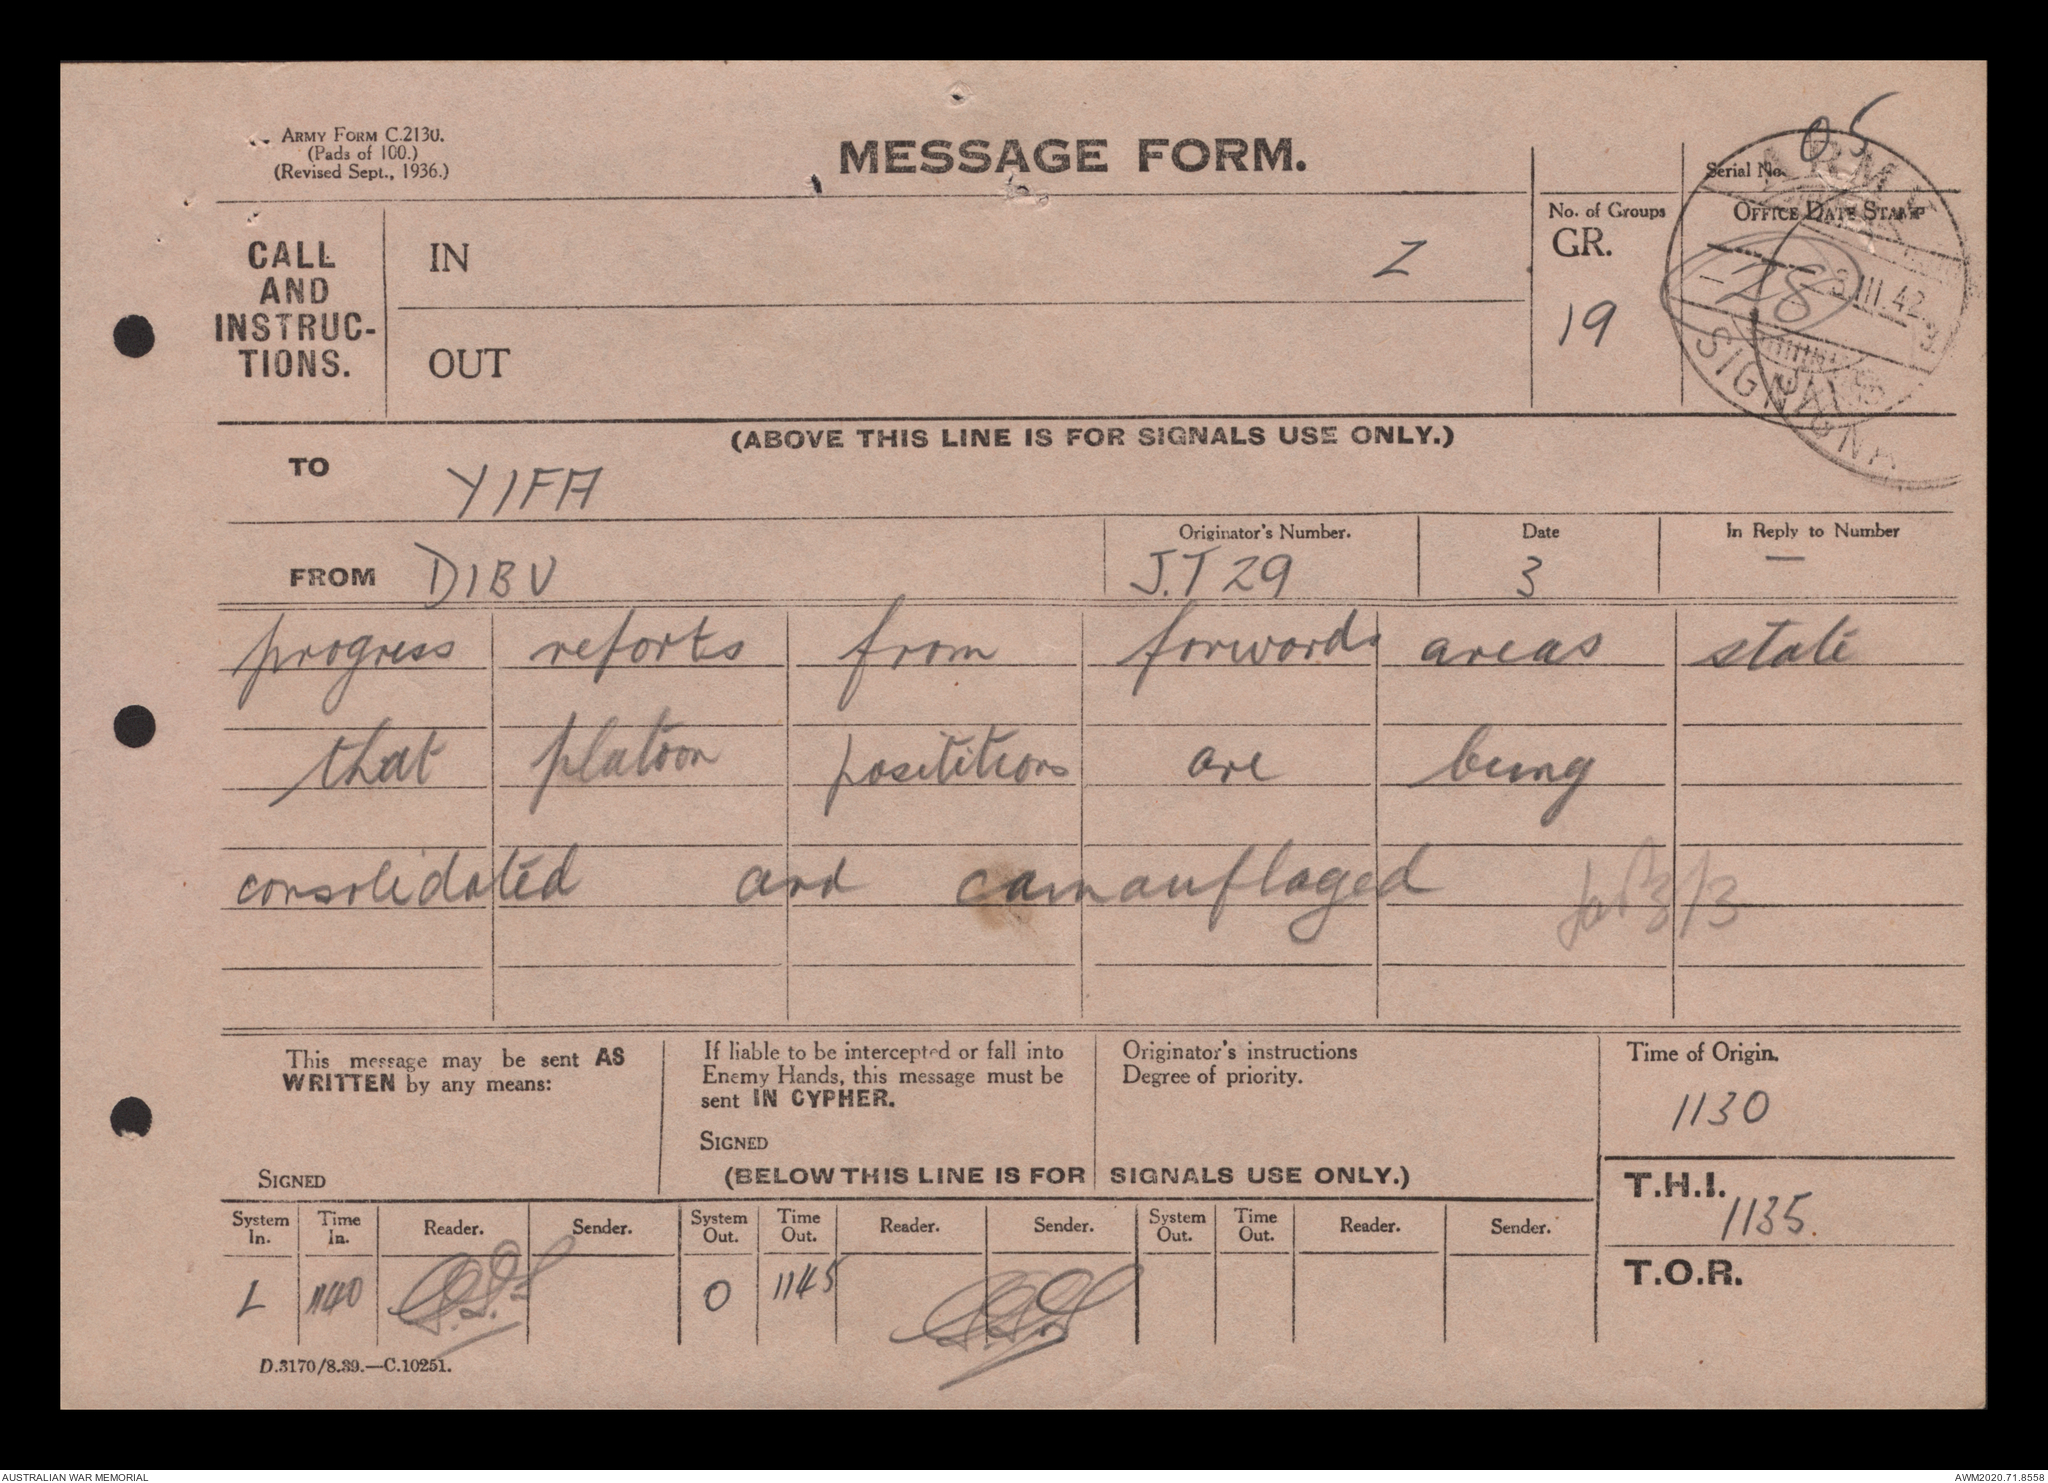 ARMY FORM C.2130.
(Pads of 100.)
(Revised Sept., 1936.)
MESSAGE FORM.
Serial No. 05
CALL
AND
INSTRUC-
TIONS.
IN Z
OUT
No. of Groups
GR.
19
OFFICE DATE STAMP
28
ARMY
3 III. 42
SIGNALS
(ABOVE THIS LINE IS FOR SIGNALS USE ONLY.)
TO YIFA
FROM DIBU
Originator's Number.
J.T 29
Date
3
In Reply to Number
—
progress reports from forwards areas state
that platoon posititions are being
consolidated and camauflaged
3/3
This message may be sent AS
WRITTEN by any means:
SIGNED
If liable to be intercepted or fall into
Enemy Hands, this message must be
sent IN CYPHER.
SIGNED
Originator's instructions
Degree of priority.
Time of Origin.
1130
(BELOW THIS LINE IS FOR SIGNALS USE ONLY.)
T.H.I. 1135.
T.O.R.
System In. Time In. Reader. Sender. System Out. Time Out. Reader. Sender. System Out. Time Out. Reader. Sender.
L 1140 O 1145
D.3170/8.39.—C.10251.
AUSTRALIAN WAR MEMORIAL
AWM2020.71.8558